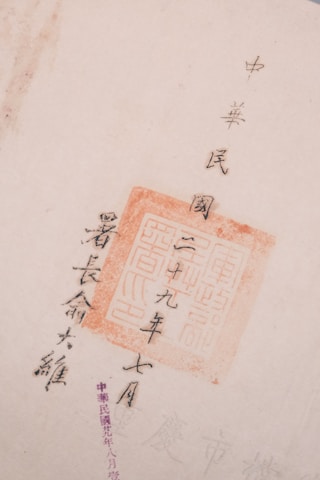 中華民國二十九年七月
署長俞大維
中華民國廿年八月
慶市